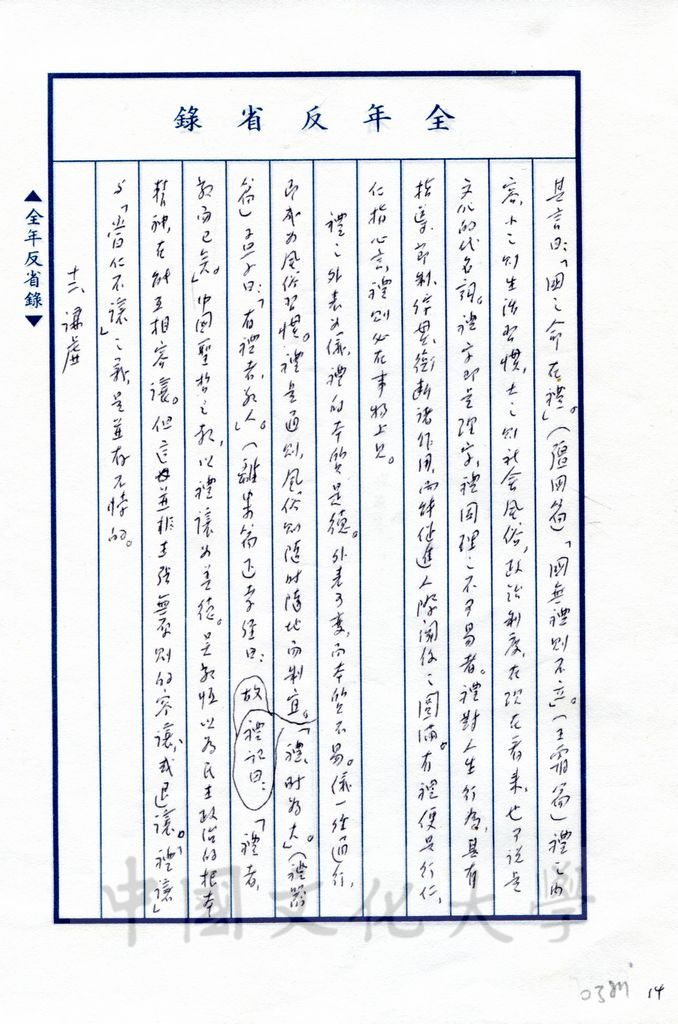 全年反省錄
其言曰:「國之命在禮」。(彊國篇)「國無禮則不立」。(王霸篇)禮之內
容,小之則生活習慣,大之則社會風俗,政治制度,在現在看来,也可說是
文化的代名詞。禮字即是理字,禮國理之不可易者。禮對人生行為,具有
指導、節制、綜貫、衡断諸作用,而能促進人際關係之圓滿。有禮便是行仁,
仁指心言,禮則必在事物上見。
禮之外表为儀,禮的本質是德。外表可變,而本質不易。儀一经通行,
即成为風俗習慣。禮是通則,風俗則隨时隨地而制宜。「禮,时為大」。(禮器
篇)孟子曰:「有禮者敬人」。(離婁篇下)孝经曰:故禮记曰:「禮者,
敬而已矣。」中国聖哲之教,以禮讓为美德。足教恆以為民主政治的根本
精神,在能互相容讓。但這並非主張無原則的容讓、或退讓。「禮讓」
与「當仁不讓」之義,是並存不悖的。
十六、謙虚
▲全年反省錄▼
中國文化大學
14